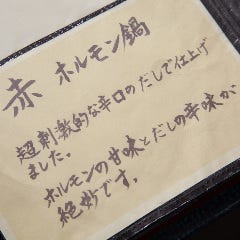 赤 ホルモン鍋
超刺激的な辛口のだしで仕上げ
ました。
ホルモンの甘味とだしの辛味が
絶妙です。